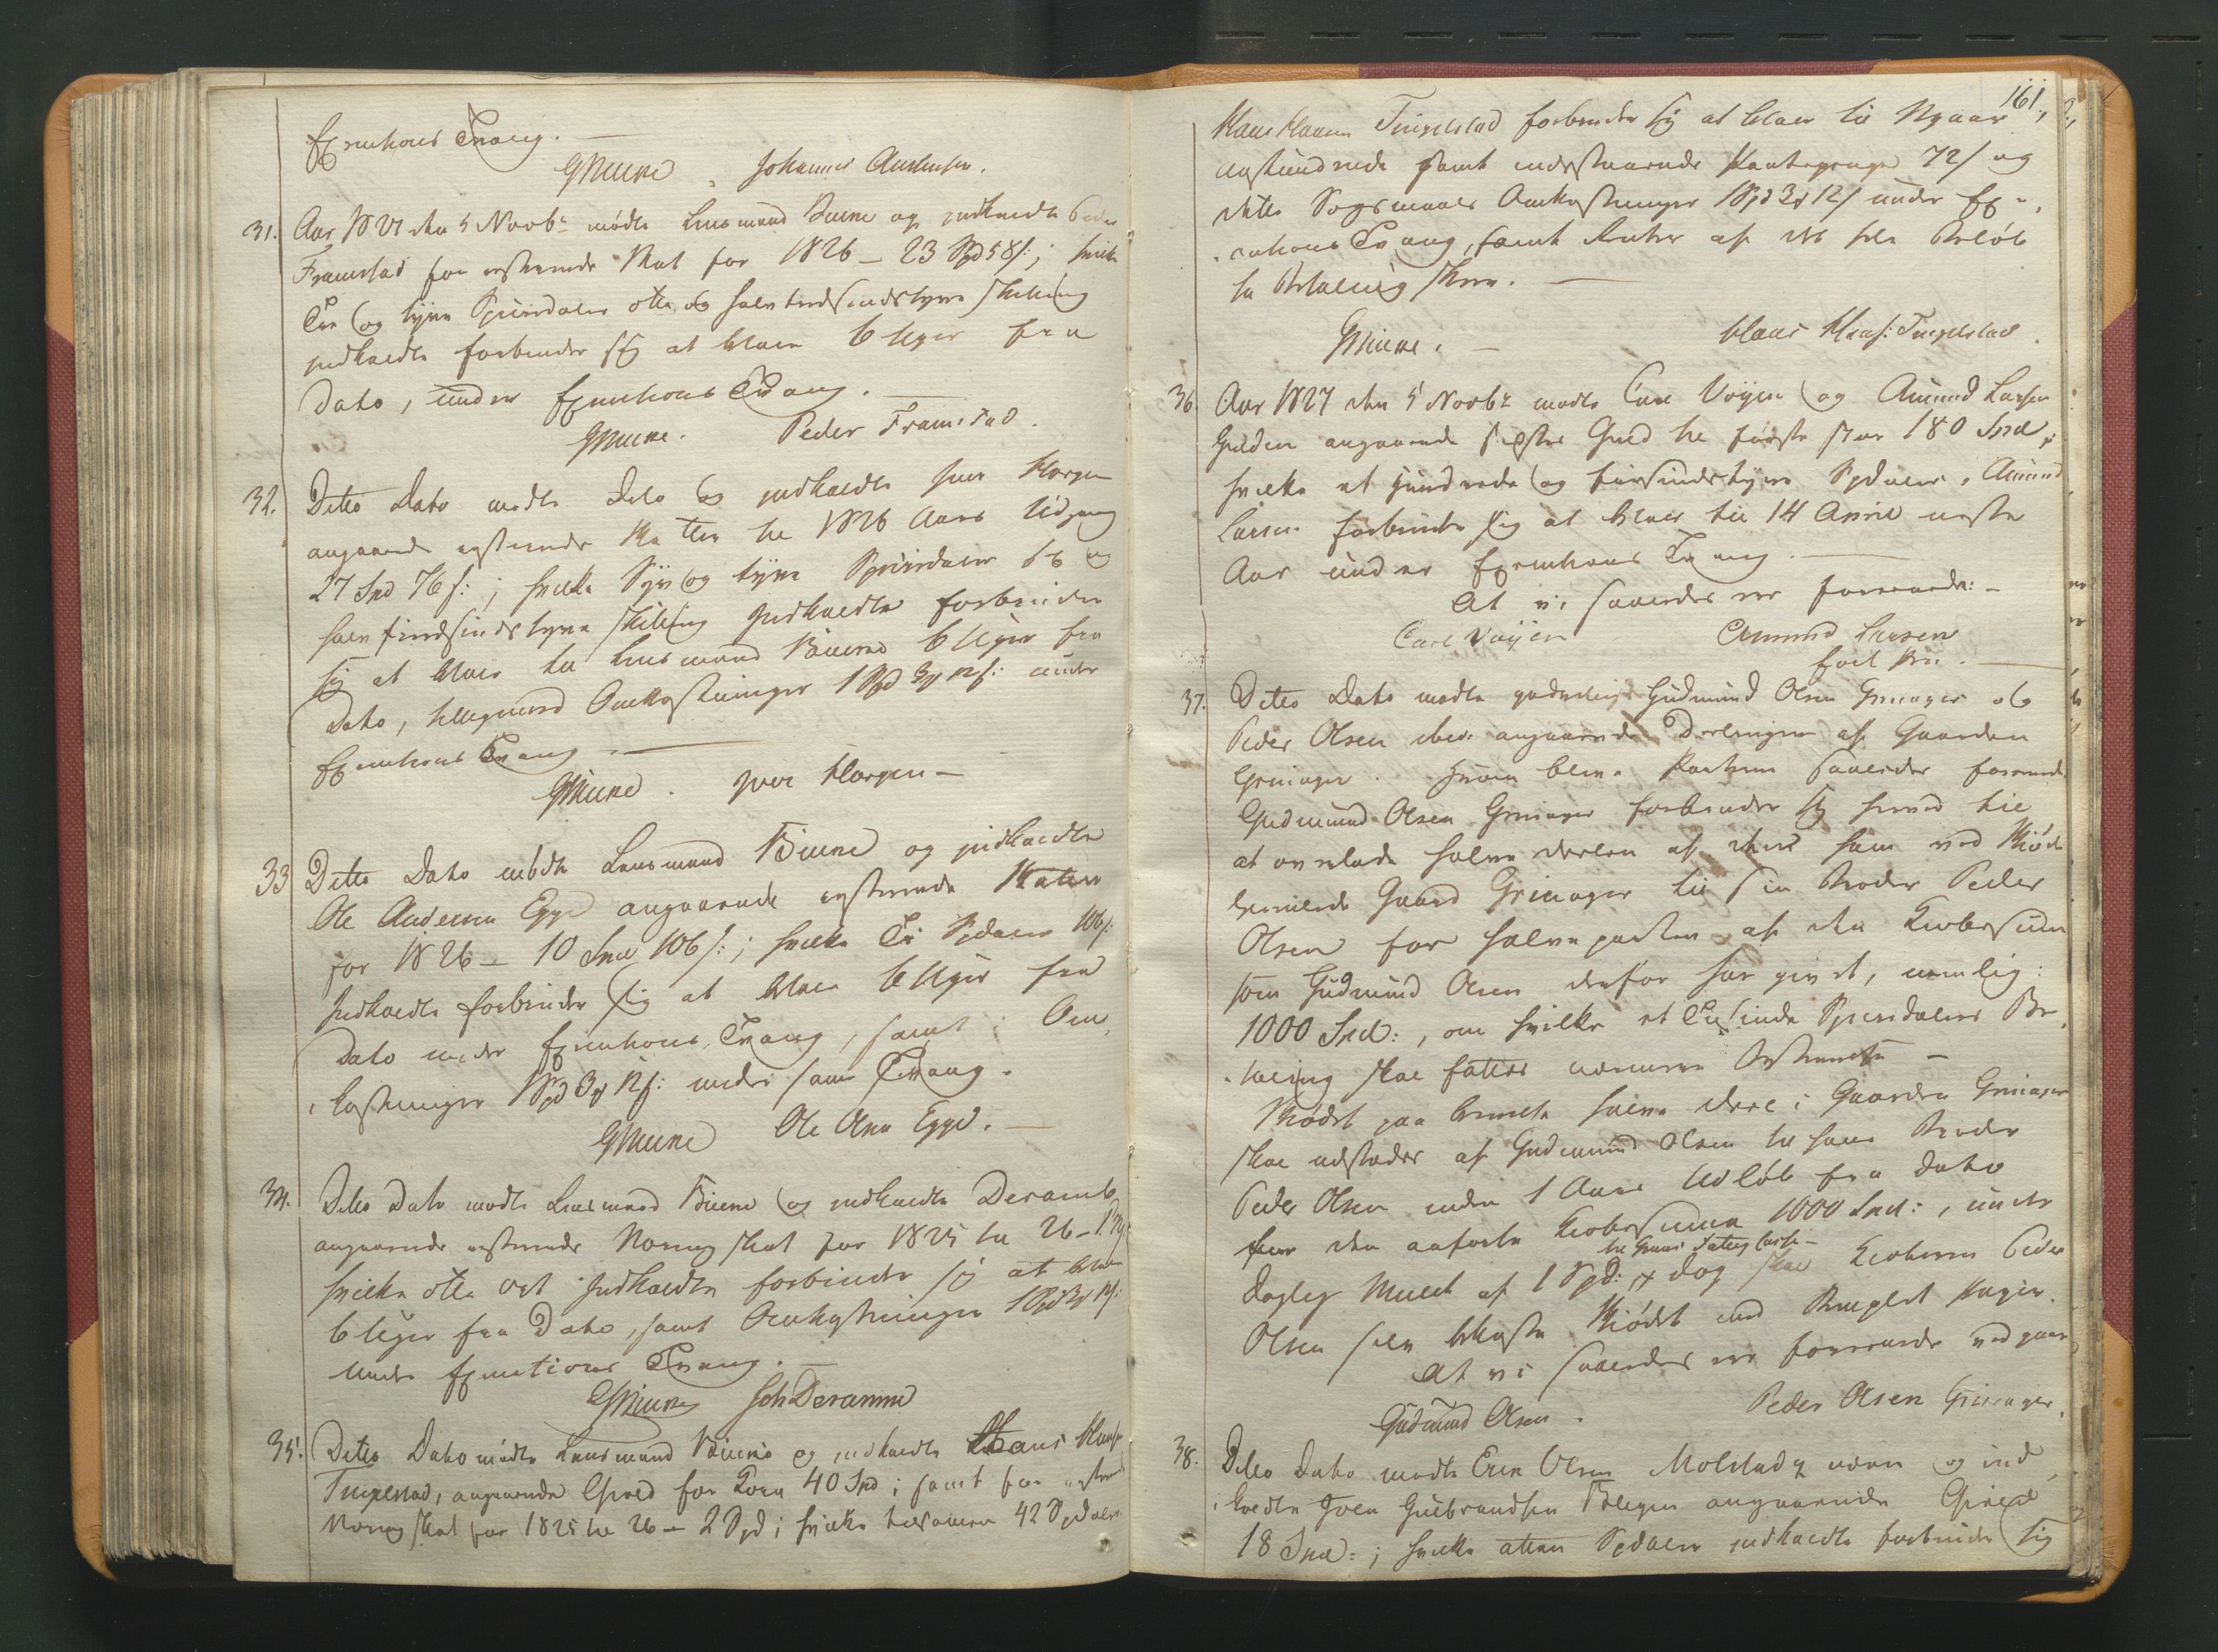 Exeutions Tvang. —
GMune Johannes Andersen.
31. Aar 1827 den 5 Novbr mødte Lensmand Mune og indkaldte Peder
Framstad for resterende Skat for 1826 – 23 Spd 58 s:; hvilke
Tre og tyve Speciedaler otte og halvtredsindstyve Skilling
indkaldte forbinder sig at betale 6 Uger fra
Dato, under Exeutions Tvang. —
GMune. Peder Framstad.
32. Ditto Dato mødte Dito og indkaldte Iver Horgen
angaaende resterende Skatter til 1826 Aars Udgang
27 Spd 76 s:; hvilke Syv og tyve Speciedaler sex og
halvfierdsindstyve Skilling Indkaldte forbinder
sig at betale til Lensmand Mune 6 Uger fra
Dato, tilligemed Omkostninger 1 Spd 3 12 s: under
Exeutions Tvang. —
GMune. Iver Horgen —
33 Ditto Dato mødte Lensmand Mune og indkaldte
Ole Andersen Egge angaaende resterende Skatter
for 1826 – 10 Spd 106 s:; hvilke Ti Spdaler 106 s:
Indkaldte forbinder sig at betale 6 Uger fra
Dato under Exeutions Tvang, samt Om,
kostninger 1 Spd 3 12 s: under samme Tvang.
GMune Ole Egge. —
34. Ditto Dato mødte Lensmand Mune og indkaldte
angaaende resterende Næringskat for 1825 til 26 –
hvilke otte Ort Indkaldte forbinder sig at betale
6 Uger fra Dato, samt Omkostninger 1 Spd 3 12 s:
under Exeutions Tvang. —
GMune Joh
35. Ditto Dato mødte Lensmand Mune og indkaldte Hans Hansen
Tingelstad, angaaende Gield for Korn 40 Spd; samt for resterende
Næringskat for 1825 til 26 – 2 Spd; hvilke tilsammen 42 Spdaler
161.
Hans Hansen Tingelstad forbinder sig at betale til Nyaar
samt 72 s og
dette Søgsmaals Omkostninger 1 Spd 3 12 s under Exe,
cutions Tvang, samt Renter af det hele Beløb
til Betaling skeer. —
GMune. — Hans Hans: Tingelstad.
36 Aar 1827 den 5 Novbr mødte Carl Vøyen og Amund Larsen
Gulden angaaende sidstes Gield til første stor 180 Spd,
hvilke et hundrede og firsindstyve Spdaler, Amund
Larsen forbinder sig at betale til 14 April neste
Aar under Exeutions Tvang. —
At vi saaledes er forenede: –
Carl Vøyen Amund Larsen
ført Pen. —
37. Ditto Dato mødte Gudmund Olsen Grinager og
Peder Olsen ibid. angaaende Delingen af Gaarden
Grinager. Hvorom blev Parterne saaledes forenede
Gudmund Olsen Grinager forbinder sig herved til
at overlade halve Delen af den ham ved Skiøde
Gaard Grinager til sin Broder Peder
Olsen for halvparten af den Kiøbesum
som Gudmund Olsen derfor har givet, nemlig:
1000 Spd:, om hvilke et Tusinde Speciedalers Be,
taling skal fattes nærmere Bestemmelse —
Skiødet paa bemeldte halve Deel i Gaarden Grinager
skal udstædes af Gudmund Olsen til hans Broder
Peder Olsen inden 1 Aars Udløb fra Dato
for den anførte Kiøbesum 1000 Spd:, under
til Grans Fattig Casse –
daglig Mulct af 1 Spd: dog skal Kiøberen Peder
Olsen selv bekoste Skiødet med Stemplet Papir.
At vi saaledes er forenede vedgaaes
Gudmund Olsen. Peder Olsen Grinager.
38. Ditto Dato mødte Erik Olsen Molstad og ind,
kaldte Joen Gulbrandsen angaaende Gield
18 Spd:; hvilke atten Spdaler indkaldte forbinder sig